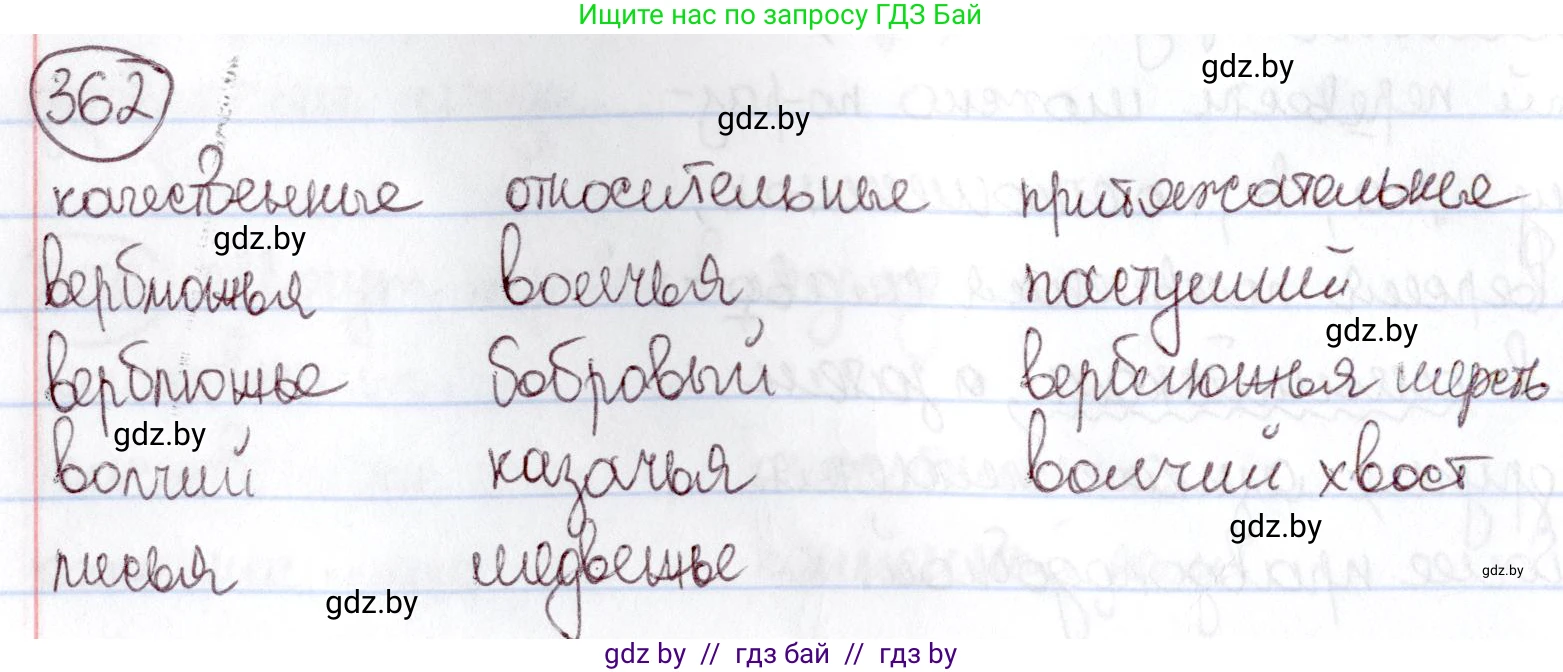 Ищите нас по запросу ГДЗ Бай
gdz.by
362
gdz.by
качественные относительные притяжательные
gdz.by
вербложья волчья пастуший
gdz.by
верблюжье бобровый верблюжья шерсть
gdz.by
волчий казачья волчий хвост
gdz.by
лисья медвежье
gdz.by
gdz.by
gdz by // гдз бай // гдз by